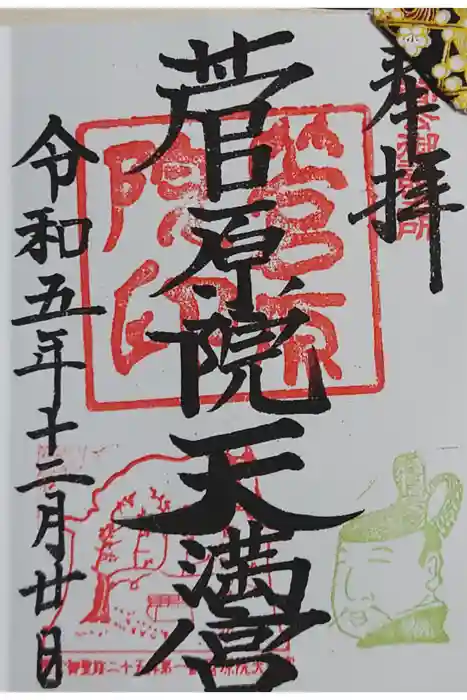 奉拝
菅原院天満宮
令和五年十二月廿日
菅原院印